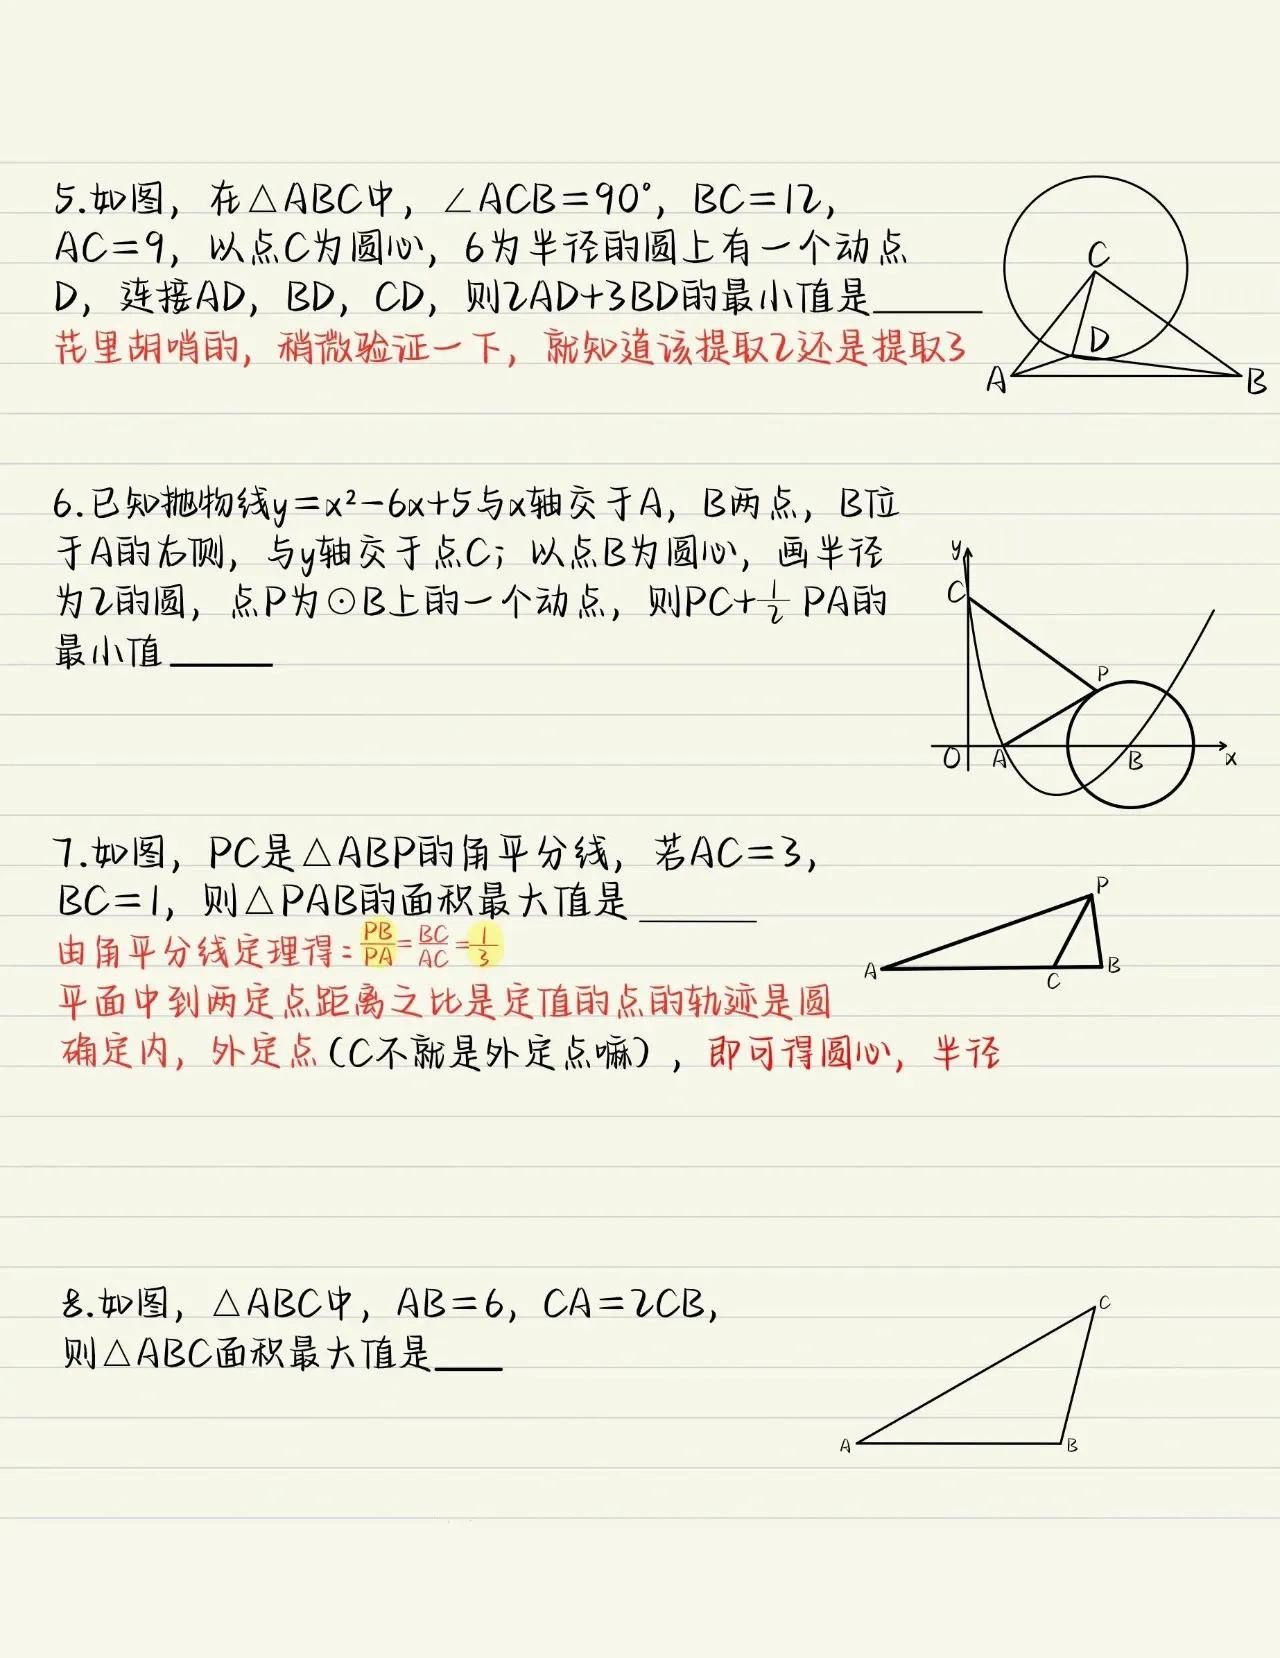 5.如图，在△ABC中，∠ACB=90°，BC=12，
AC=9，以点C为圆心，6为半径的圆上有一个动点
D，连接AD，BD，CD，则2AD+3BD的最小值是______
花里胡哨的，稍微验证一下，就知道该提取2还是提取3
C
D
A
B
6.已知抛物线y=x²-6x+5与x轴交于A，B两点，B位
于A的右侧，与y轴交于点C；以点B为圆心，画半径
为2的圆，点P为⊙B上的一个动点，则PC+1/2 PA的
最小值______
y
C
P
O
A
B
x
7.如图，PC是△ABP的角平分线，若AC=3，
BC=1，则△PAB的面积最大值是______
由角平分线定理得：PB/PA=BC/AC=1/3
平面中到两定点距离之比是定值的点的轨迹是圆
确定内，外定点（C不就是外定点嘛），即可得圆心，半径
P
A
C
B
8.如图，△ABC中，AB=6，CA=2CB，
则△ABC面积最大值是____
C
A
B